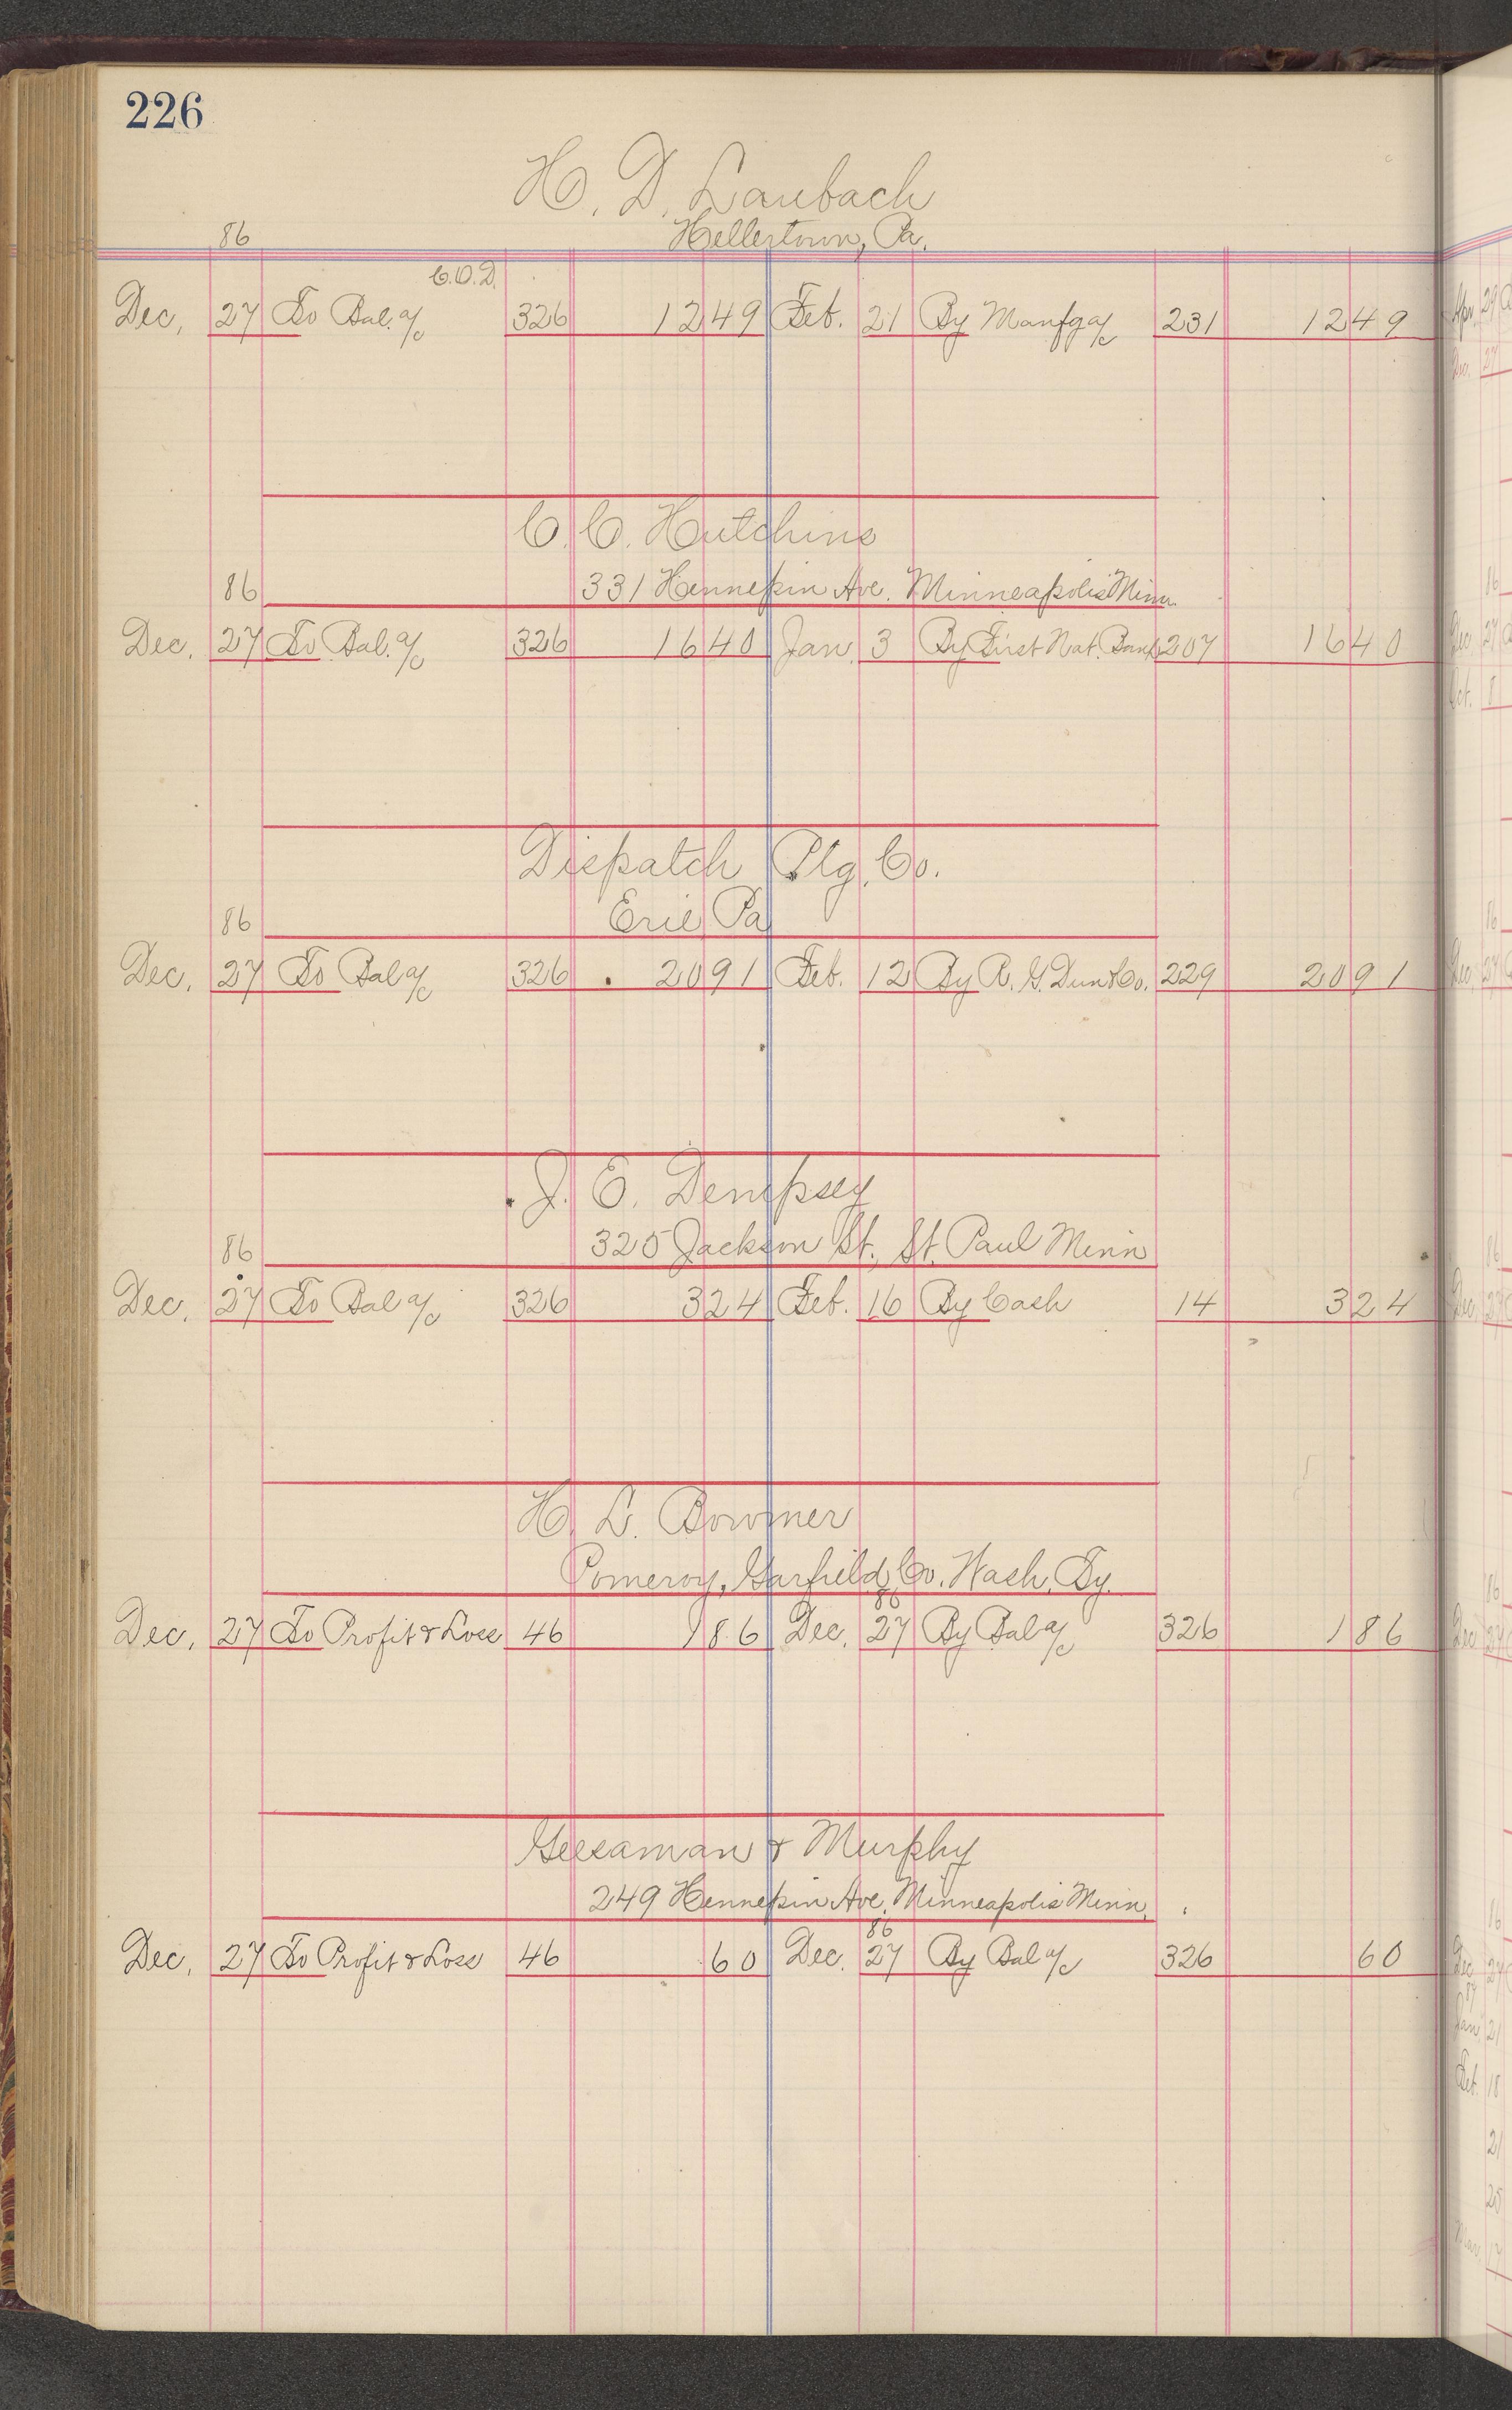 226
H. D. Laubach
86 Hellertown, Pa.
C.O.D.
Dec. 27 To Bal. a/c 326 12 49 Feb. 21 By Manfg a/c 231 12 49
C. C. Hutchins
86 331 Hennepin Ave. Minneapolis Minn.
Dec. 27 To Bal. a/c 326 16 40 Jan. 3 By First Nat. Bank 207 16 40
Dispatch Ptg. Co.
86 Erie Pa
Dec. 27 To Bal a/c 326 20 91 Feb. 12 By R. G. Dun & Co. 229 20 91
J. E. Dempsey
86 325 Jackson St., St. Paul Minn
Dec. 27 To Bal a/c 326 3 24 Feb. 16 By Cash 14 3 24
H. L. Bowmer
Pomeroy, Garfield Co. Wash. Ty.
86
Dec. 27 To Profit & Loss 46 1 86 Dec. 27 By Bal a/c 326 1 86
Geesaman & Murphy
249 Hennepin Ave. Minneapolis Minn.
86
Dec. 27 To Profit & Loss 46 60 Dec. 27 By Bal a/c 326 60